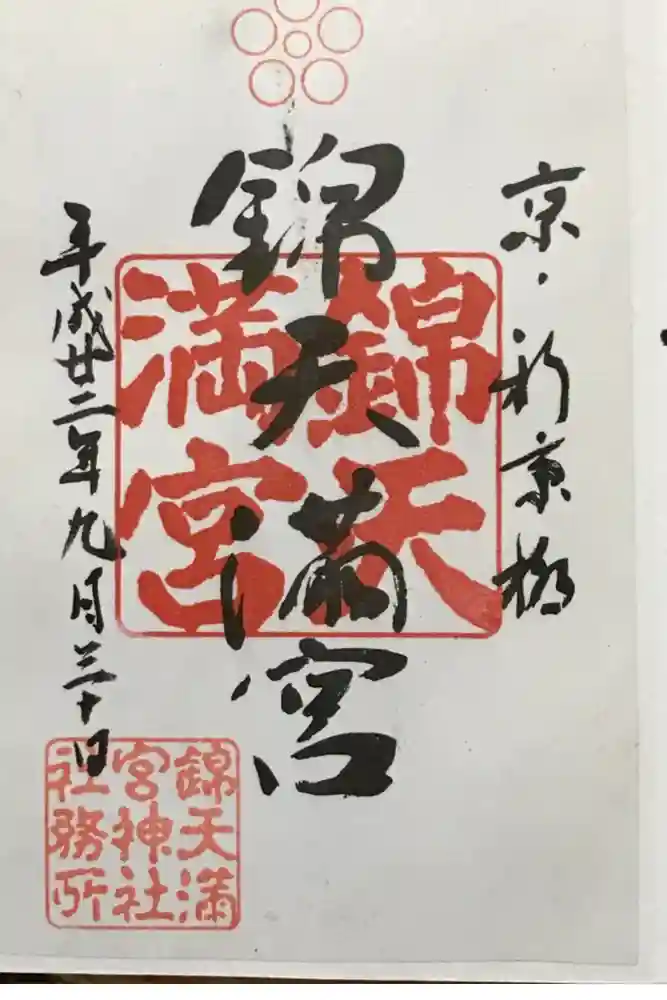 京・新京極
錦天満宮
錦天
満宮
平成廿二年九月三十日
錦天満
宮神社
社務所